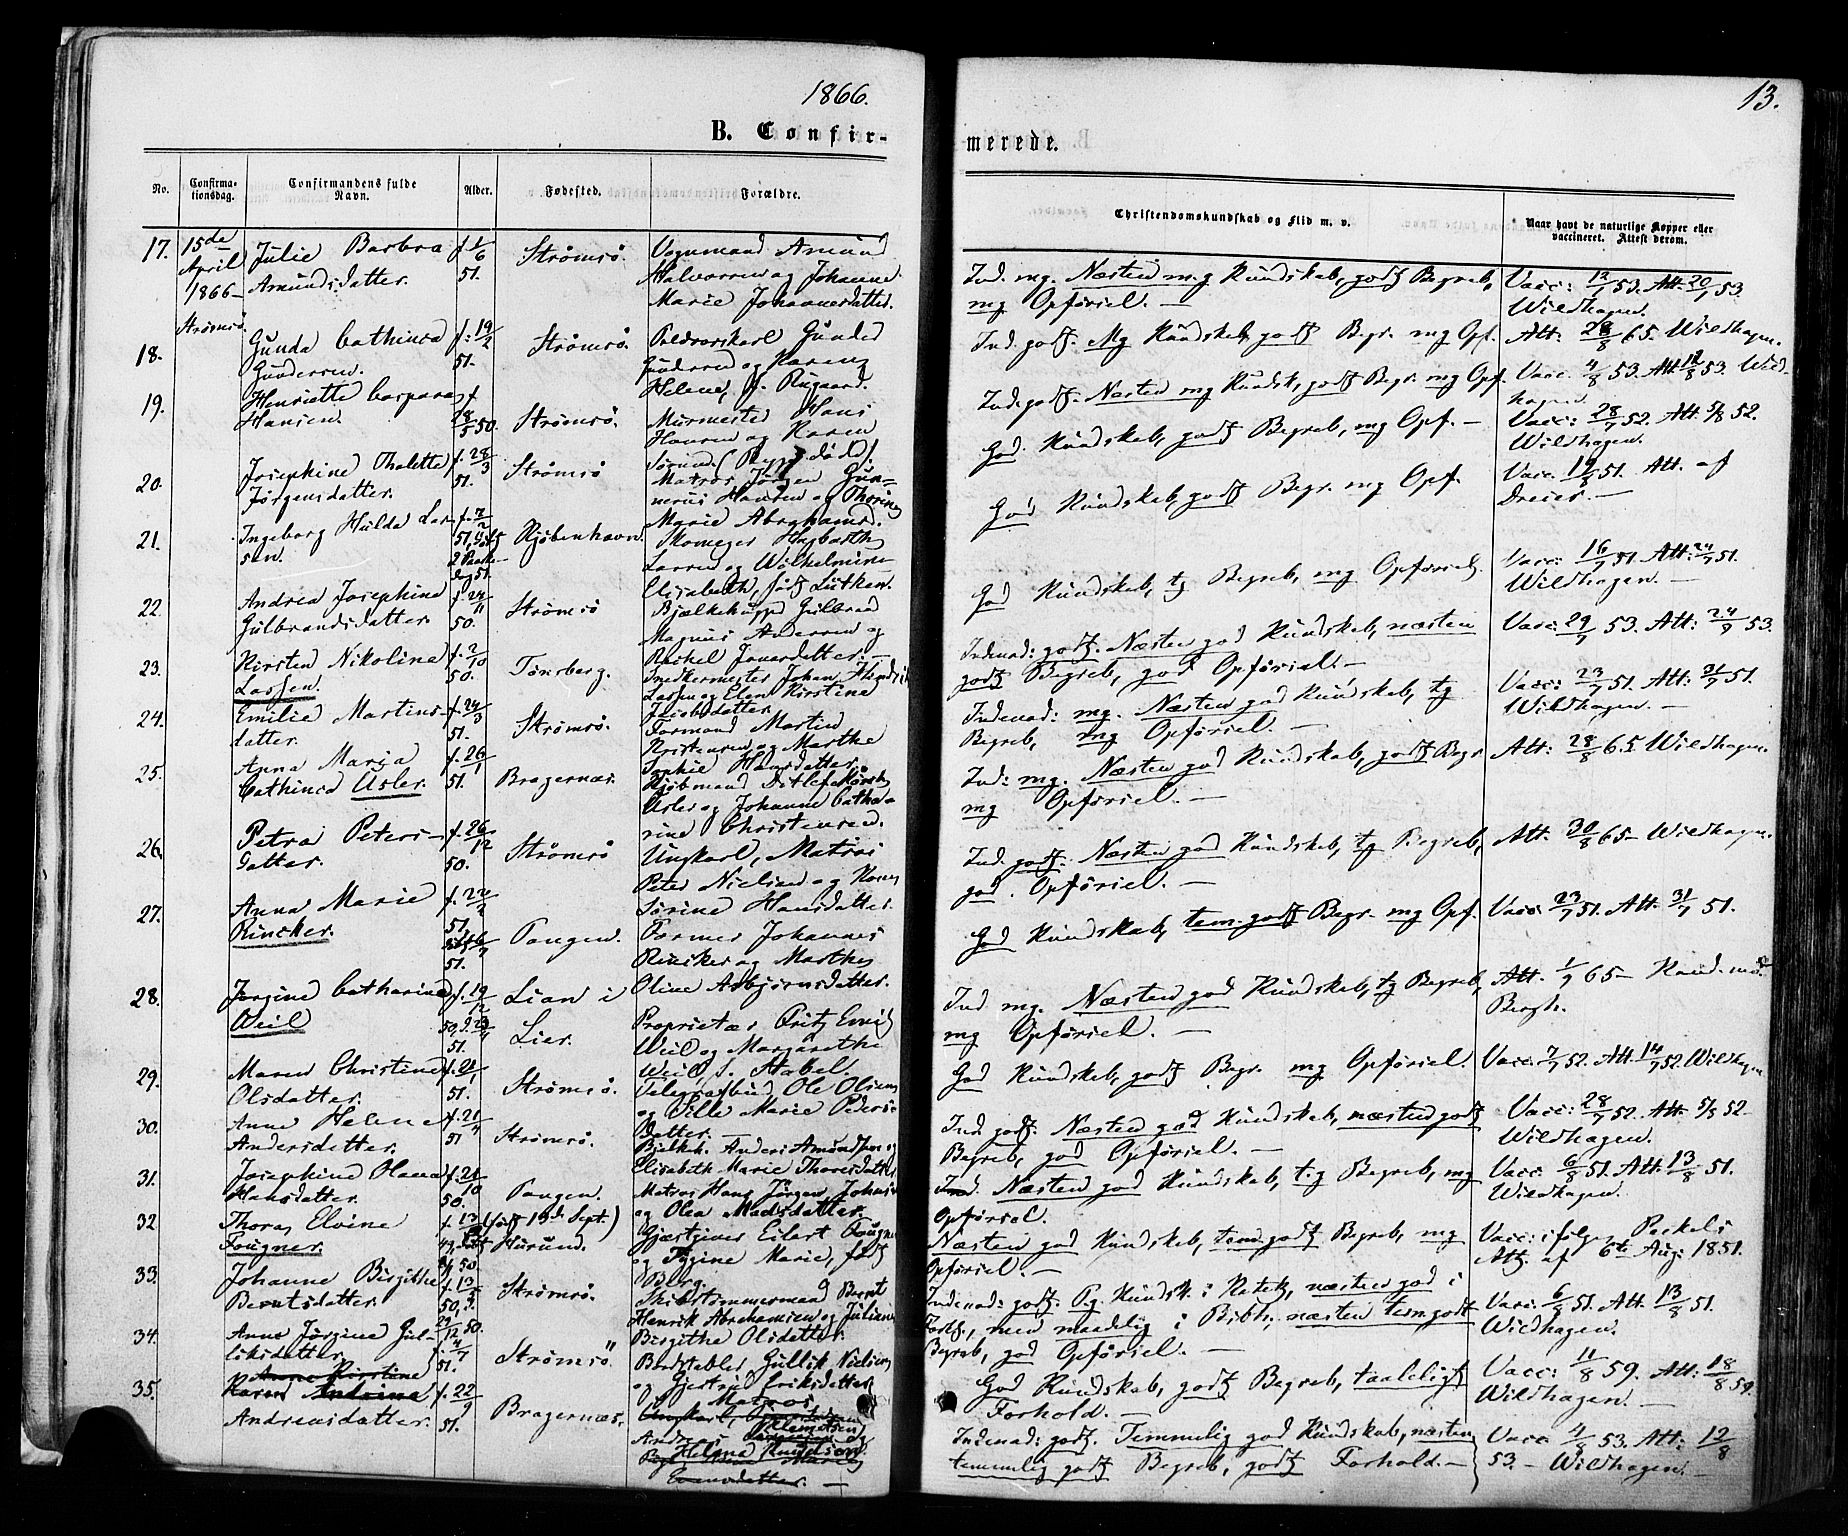 1866.
13.
B. Confir-
merede.
No.
Confirma-
tionsdag.
Confirmandens fulde
Navn.
Alder.
Fødested.
Forældre.
Christendomskundskab og Flid m. v.
Naar havt de naturlige Kopper eller
vaccineret. Attest derom.
17. 15de April 1866 Strømsø.
Julie Barbra
Amundsdatter.
f. 1/6 51.
Strømsø.
Vognmand Amund
Halvorsen og Johanne
Marie Johannesdatter.
Ind. mg. Næsten mg Kundskab, godt Begreb,
mg Opførsel. —
Vacc: 12/7 53. Att. 20/7 53.
Wildhagen.
18.
Gunda Cathinca
Gundersen.
f. 19/2 51.
Strømsø.
Gunder
Gundersen og Karen
Helene, f. Rygaard.
Ind. godt. Mg Kundskab, godt Begr. mg Opf.
Att: 28/8 65. Wildhagen.
19.
Henriette Caspara
Hansen.
f. 28/5 50.
Strømsø.
Murmester Hans
Hansen og Karen
Ind. godt. Næsten mg Kundsk., godt Begr. mg Opf.
Vacc. 4/8 53. Att. 12/8 53. Wild-
hagen.
20.
Josephine Thalette
Jørgensdatter.
f. 28/3 51.
Strømsø
Matros Jørgen Gun-
nerius Hansen og Thorine
Marie Abrahamsd.
God Kundskab, godt Begreb, mg Opf. —
Vacc: 28/7 52. Att. 5/8 52.
Wildhagen.
21.
Ingeborg Hulda Lar-
sen.
f. 7/2 51.
Kjøbenhavn.
Skomager
Larsen og Wilhelmine
Elisabeth, født Lütken.
God Kundskab, godt Begr. mg Opf.
Vacc. 19/8 51. Att. af
Dreier. —
22.
Andrea Josephine
Gulbrandsdatter.
f. 24/11 50.
Strømsø
Gulbrand
Magnus Andersen og
Rachel
God Kundskab, tg Begreb, mg Opførsel.
Vacc: 16/7 51. Att: 24/7 51.
Wildhagen.
23.
Kirsten Nikoline
Lassen.
f. 2/10 50.
Tønsberg.
Snedkermester Johan Hendrik
Lassen og Elen Kirstine
Jacobsdatter.
Indenad: godt. Næsten god Kundskab, næsten
godt Begreb, god Opførsel. —
Vacc: 29/7 53. Att: 24/9 53.
24.
Emilie Martins-
datter.
f. 24/3 51.
Strømsø.
Formand Martin
Kristensen og Marthe
Sophie Hansdatter.
Indenad: mg. Næsten god Kundskab, tg
Begreb, mg Opførsel. —
Vacc: 23/7 51. Att: 31/7 51.
Wildhagen. —
25.
Anna Maria
Cathinca Usler.
f. 26/1 51.
Bragernæs.
Kjøbmand Ditlef
Usler og Johanne Catha-
rine Christensen.
Ind: mg. Næsten god Kundskab, godt Begr.
mg Opførsel. —
Att: 28/8 65. Wildhagen.
26.
Petra Peters-
datter.
f. 26/12 50.
Strømsø
Ungkarl, Matros
Peter Nielsen og Karen
Sørine Hansdatter.
Ind. godt. Næsten god Kundskab, tg Begreb,
god. Opførsel. —
Att: 30/8 65 — Wildhagen.
27.
Anna Marie
Rincker.
f. 22/2 51,
Tangen.
Farmer Johannes
Rincker og Marthe
Oline Asbjørnsdatter.
God Kundskab, tem. godt Begr. mg Opf.
Vacc: 23/7 51. Att. 31/7 51.
28.
Jørgine Catharine
Weil
f. 19/12 50,
Lian i
Lier.
Proprietær Fritz Emil
Weil og Margarethe
Weil, f. Stabel.
Ind mg. Næsten god Kundskab, tg Begreb,
mg Opførsel. —
Att. 1/9 65 — Kand. med
Bergh.
29.
Maren Christine
Olsdatter.
f. 21/1 51.
Strømsø.
Telegrafbud Ole Olsen
og Sille Marie Peders-
datter. —
God Kundskab, godt Begr. mg Opførsel.
Vacc. 7/7 52. Att. 14/7 52. Wildhagen
30.
Anne Helene
Andersdatter.
f. 21/4 51
Strømsø.
Anders Amundsen og
Elisabeth Marie Thoresdatter
Ind godt. Næsten god Kundskab, næsten godt
Begreb, god Opførsel. —
Vacc: 28/7 52. Att. 5/8 52.
Wildhagen.
31.
Josephine Olava
Hansdatter.
f. 21/10 50.
Tangen.
Matros Hans Jørgen Johns.
og Olea Madsdatter.
Ind. Næsten god Kundskab, t.g Begreb, mg
Opførsel.
Vacc: 6/8 51. Att. 13/8 51.
Wildhagen.
32
Thora Elvine
Fougner.
(født 13de Sept.)
Hurum.
Gjæstgiver Eilert Fougner
og Jørgine Marie, født
Berg.
Næsten god Kundskab, tem. godt Begreb, mg
Opførsel. —
Vacc: ifølge
Att. af 6te Aug: 1851.
33.
Johanne Birgithe
Berntsdatter.
f. 13/5 50,
Strømsø.
Skibstømmermand Bernt
Henrik Abrahamsen og Juliane
Birgitha Olsdatter
Indenad: godt. Pg. Kundsk. i Katek, næsten god i
Forkl., men maadelig i Bibh., næsten tem. godt
Begreb, god Opførsel. —
Vacc: 6/8 51. Att: 13/8 51.
Wildhagen.
34.
Anne Jørgine Gul-
liksdatter
f. 4/7 51.
Strømsø.
Bordstabler Gullik Nielsen
og Gjertrud Eriksdatter
God Kundskab, godt Begreb, taaleligt
Forhold. —
Vacc: 11/8 59. Att: 18/8 59.
Wildhagen. —
35.
Anne Kirstine
Karen Andrine
Andreasdatter.
f. 22/9 51.
Bragernæs.
Matros
Helene Knudsen
Marie
Evensdatter. —
Indenad: godt. Temmelig god Kundskab, næsten
temmelig godt Begreb, godt Forhold. —
Vacc 4/8 53. Att: 12/8
53. — Wildhagen. —